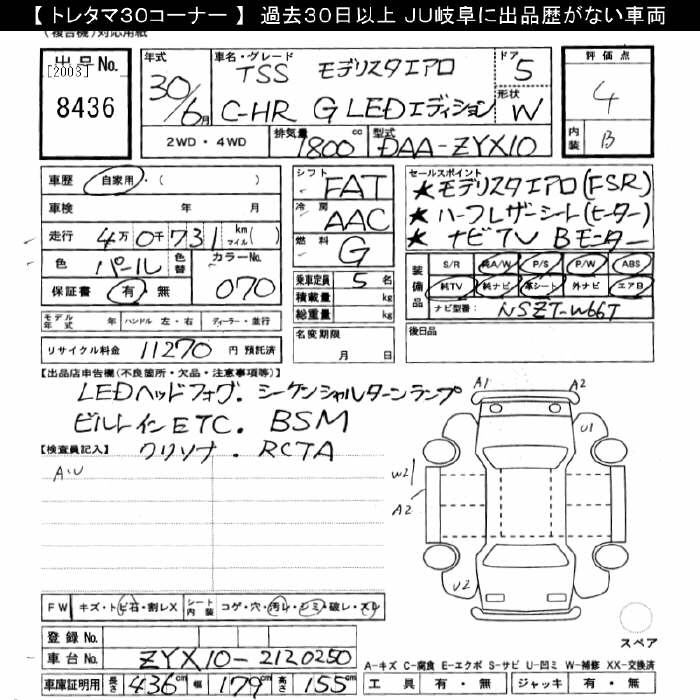 【 トレタマ30コーナー 】 過去30日以上 JU岐阜に出品歴がない車両
(複合機)対応用紙
出品No.
[2003]
8436
年式
30/6月
車名・グレード
TSS モデリスタエアロ
C-HR G LEDエディション
ドア
5
形状
W
評価点
4
内装
B
2WD・4WD
排気量
1800cc
型式
DAA-ZYX10
車歴 自家用・( )
車検 年 月
走行 4万0千731 km マイル( )
色 パール 色替 カラーNo. 070
保証書 有・無
シフト FAT
冷房 AAC
燃料 G
乗車定員 5 名
積載量 kg
総重量 kg
名変期限
月 日
セールスポイント
★モデリスタエアロ(FSR)
★ハーフレザーシート(ヒーター)
★ナビTV Bモニター
装備品
S/R 純A/W P/S P/W ABS
純TV 純ナビ 革シート 外ナビ エアB
ナビ型番: NSZT-W66T
後日品
モデル年式 年 ハンドル 左・右 ディーラー・並行
リサイクル料金 11270 円 預託済
【出品店申告欄(不良箇所・欠品・注意事項等)】
LEDヘッドフォグ. シーケンシャルターンランプ
ビルトインETC. BSM
クリソナ. RCTA
【検査員記入】
A・U
A1 A2
U1
W2
A2
U2
FW キズ・トビ石・割レX シート内装 コゲ・穴・汚レ・シミ・破レ・スレ
スペア
登録No.
車台No. ZYX10-2120250
車庫証明用 長さ 436cm 幅 179cm 高さ 155cm
A-キズ C-腐食 E-エクボ S-サビ U-凹ミ W-補修 XX-交換済
工具 有・無 ジャッキ 有・無